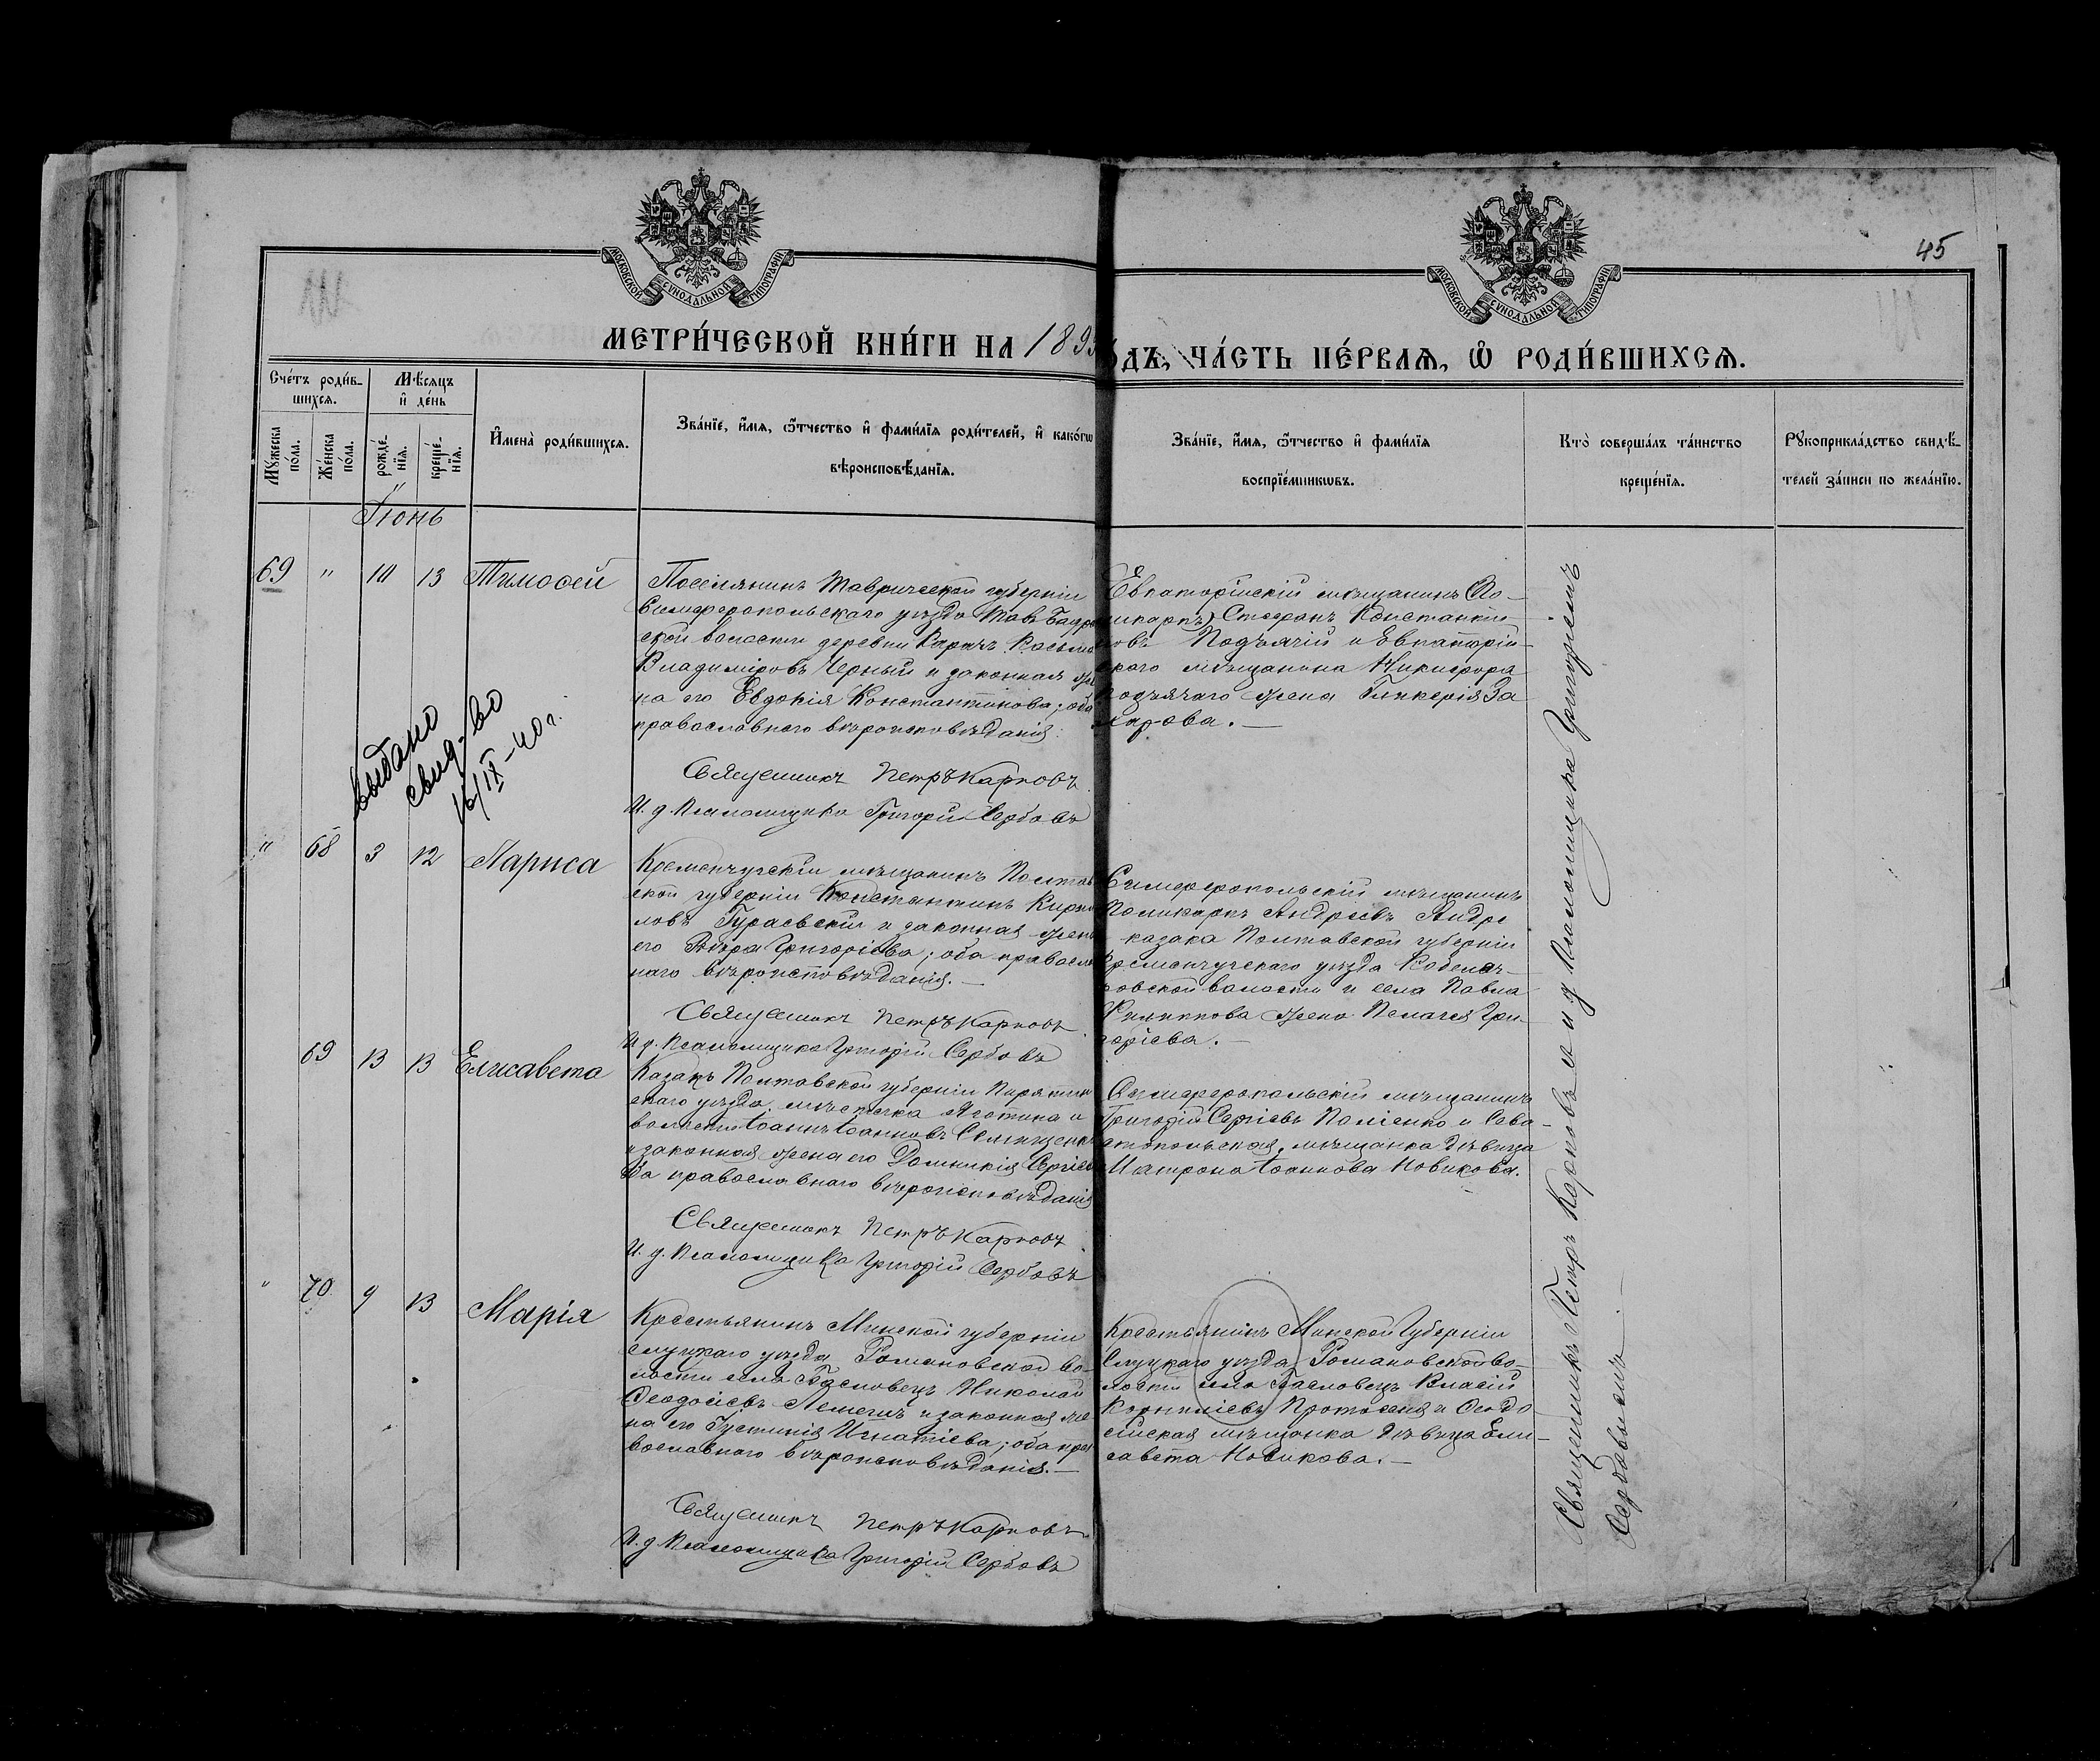 МОСКОВСКОЙ СѴНОДАЛЬНОЙ ТИПОГРАФІИ
МОСКОВСКОЙ СѴНОДАЛЬНОЙ ТИПОГРАФІИ
45
МЕТРИ́ЧЕСКОЙ КНИ́ГИ НА 1893
ОДЪ, ЧА́СТЬ ПЕ́РВАѦ, Ѽ РОДИ́ВШИХСѦ.
Сче́тъ роди́в-
шихсѧ.
Мꙋ́жеска по́ла.
Же́нска по́ла.
Мѣ́сѧцъ
и҆ де́нь
рожде́-
нїѧ.
креще́-
нїѧ.
И҆мена̀ роди́вшихсѧ.
Зва́нїе, и҆́мѧ, ѻ҆́тчество и҆ фами́лїѧ роди́телей, и҆ како́гѡ
вѣроисповѣ́данїѧ.
Зва́нїе, и҆́мѧ, ѻ҆́тчество и҆ фами́лїѧ
воспрїе́мникѡвъ.
Кто̀ соверша́лъ та́инство
креще́нїѧ.
Рꙋкоприкла́дство свидѣ́-
телей за́писи по жела́нїю.
Іюнь
69 " 10 13 Тимоѳей
Поселянинъ Таврической губерніи
Симферопольскаго уѣзда
ской волости деревни Карачъ Косьма
Владиміровъ Черный и законная же
на его Евдокія Константинова; оба
православнаго вѣроисповѣданія.
Священникъ Петръ Карповъ
И. д. Псаломщика Григорій Сербовъ
Евпаторійскій мѣщанинъ
Стефанъ Константи-
новъ Подъячій и Евпаторій-
скаго мѣщанина Никифора
Подъячаго жена Гликерія За
харова.—
выдано
свид-во
16/IX-40 г.
" 68 3 12 Лариса
Кременчугскій мѣщанинъ Полтав
ской губерніи Константинъ Кирил
ловъ Гураевскій и законная жена
его Вѣра Григорьева; оба православ
наго вѣроисповѣданія.—
Священникъ Петръ Карповъ
И. д. Псаломщика Григорій Сербовъ
Симферопольскій мѣщанинъ
Поликарпъ Андреевъ
казака Полтавской губерніи
Кременчугскаго уѣзда
ковской волости и села Павла
Филиппова жена Пелагея Гри-
горіева.—
69 13 13 Елисавета
Казакъ Полтавской губерніи Пирятин
скаго уѣзда мѣстечка Яготина и
волости Іоаннъ Іоанновъ
и законная жена его Домникія Сергіева
оба православнаго вѣроисповѣданія
Священникъ Петръ Карповъ
И. д. Псаломщика Григорій Сербовъ
Симферопольскій мѣщанинъ
Григорій Сергіевъ и Сева-
стопольская мѣщанка дѣвица
Матрона Іоаннова Новикова.
" 70 9 13 Марія
Крестьянинъ Минской губерніи
Слуцкаго уѣзда Романовской во-
лости села Басловецъ Николай
Ѳеодосіевъ Лемешъ и законная же
на его Густинія Игнатіева; оба пра
вославнаго вѣроисповѣданія.—
Священникъ Петръ Карповъ
И. д. Псаломщика Григорій Сербовъ
Крестьянинъ Минской Губерніи
Слуцкаго уѣзда Романовской во-
лости села Басловецъ Власій
Корниліевъ и Ѳеодо
сійская мѣщанка дѣвица Ели-
савета Новикова.—
Священникъ Петръ Карповъ съ и. д. Псаломщика Григоріемъ
Сербовымъ.—